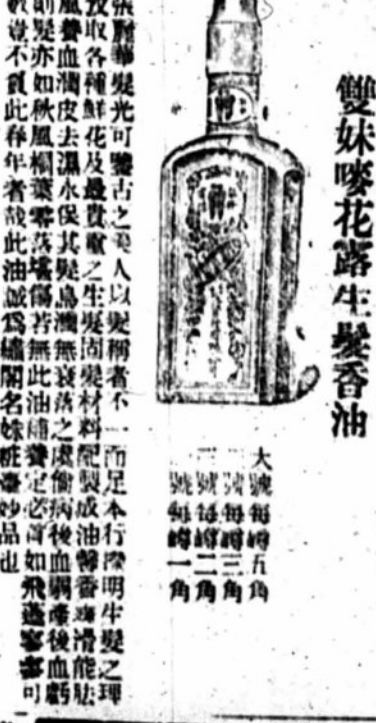 雙妹嘜花露生髮香油
大號每樽五角
二號每樽三角
三號每樽二角
號每樽一角
張麗華髮光可鑒古之美人以髮稱者不一而足本行發明生髮之理
故取各種鮮花及最貴重之生髮固髮材料配製成油馨香滑能祛
風養血潤皮去濕永保其髮烏潤無衰落之虞倘病後血弱產後血虧
則髮亦如秋風桐葉零落堪傷若無此油補養定必首如飛蓬寥寥可
數豈不負此春年者哉此油誠爲繡閣名姝粧臺妙品也